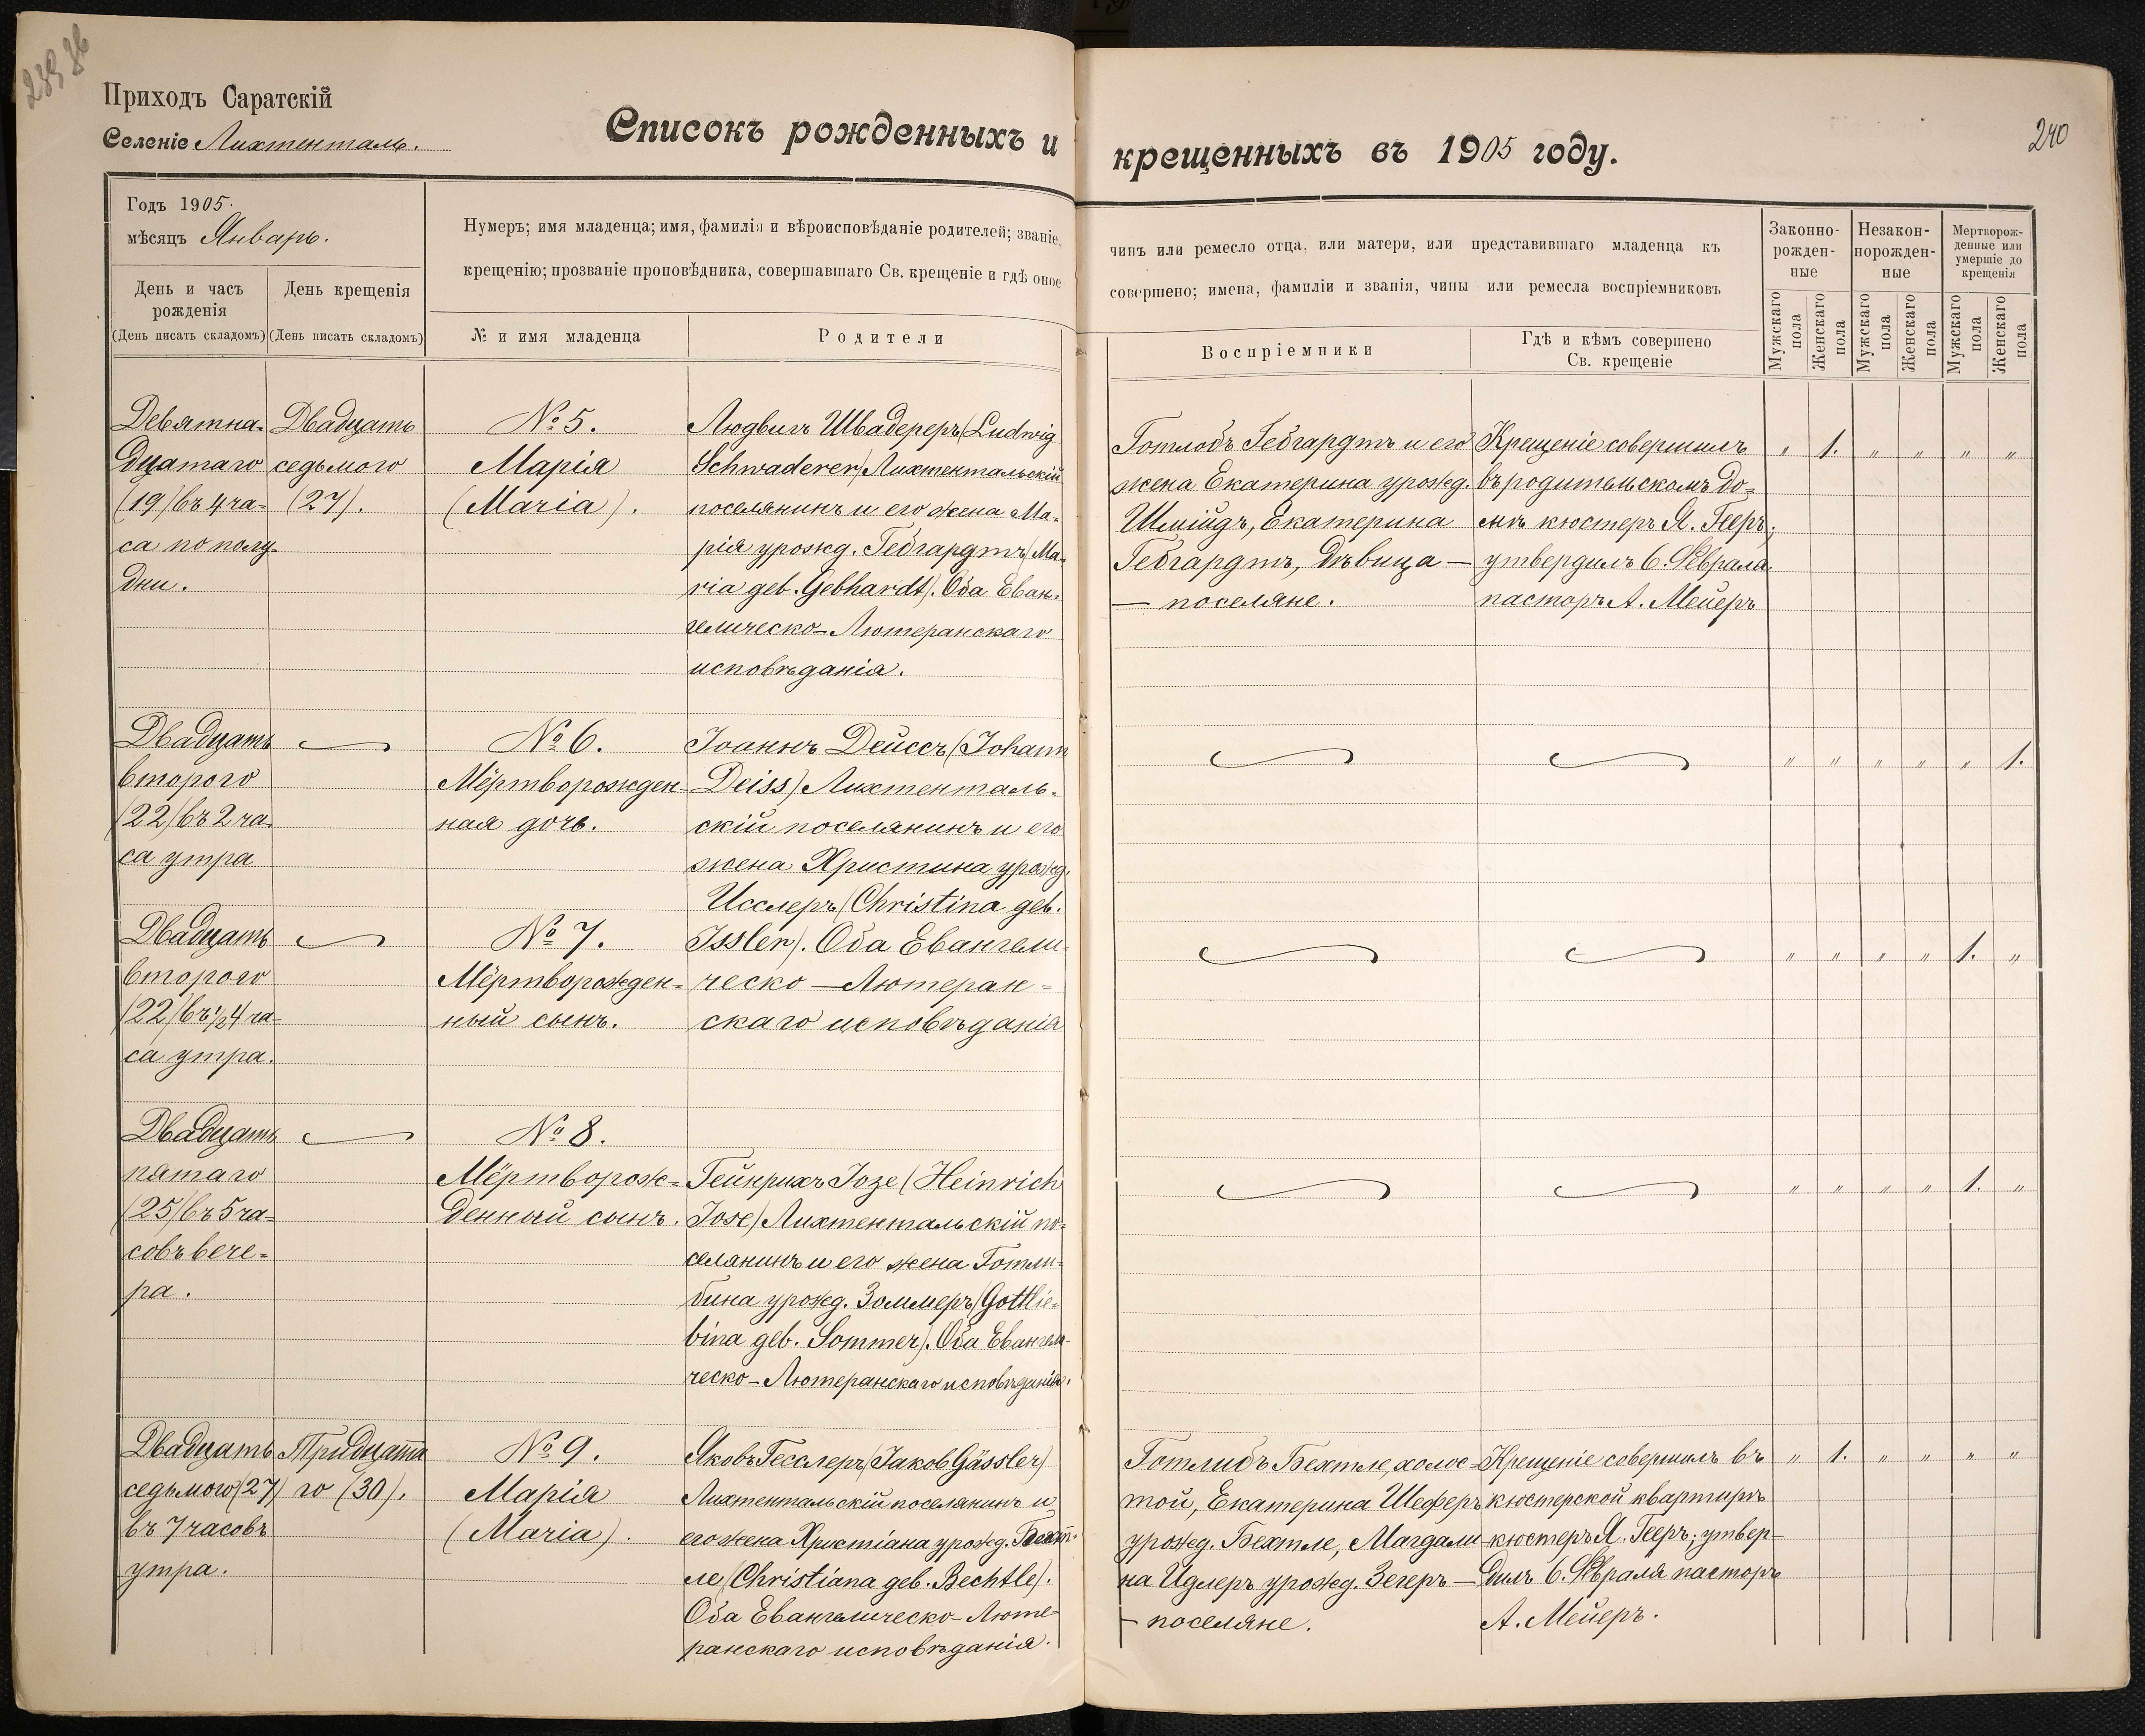 Приходъ Саратскій
Селеніе Лихтенталь.
Списокъ рожденныхъ и
крещенныхъ въ 1905 году.
240
Годъ 1905.
мѣсяцъ Январь.
День и часъ
рожденія
(День писать складомъ)
День крещенія
(День писать складомъ)
Нумеръ; имя младенца; имя, фамилія и вѣроисповѣданіе родителей; званіе,
крещенію; прозваніе проповѣдника, совершавшаго Св. крещеніе и гдѣ оное
№ и имя младенца
Родители
чинъ или ремесло отца, или матери, или представившаго младенца къ
совершено; имена, фамиліи и званія, чины или ремесла воспріемниковъ
Воспріемники
Гдѣ и кѣмъ совершено
Св. крещеніе
Законно-
рожден-
ные
Незакон-
норожден-
ные
Мертворож-
денные или
умершіе до
крещенія
Мужскаго
пола
Женскаго
пола
Мужскаго
пола
Женскаго
пола
Мужскаго
пола
Женскаго
пола
Девятна-
дцатаго
(19) въ 4 ча-
са по полу-
дни.
Двадцать
седьмого
(27).
№ 5.
Марія
(Maria).
Людвигъ Швадереръ (Ludwig
Schwaderer) Лихтентальскій
поселянинъ и его жена Ма-
рія урожд. Гебгардтъ (Ma-
ria geb. Gebhardt). Оба Еван-
гелическо-Лютеранскаго
исповѣданія.
Готлобъ Гебгардтъ и его
жена Екатерина урожд.
Шмійдъ, Екатерина
Гебгардтъ, дѣвица —
— поселяне.
Крещеніе совершилъ
въ родительскомъ до-
мѣ кюстеръ Я. Гееръ;
утвердилъ 6. Феврала
пасторъ А. Мейеръ
" 1. " " " "
Двадцать
второго
(22) въ 2 ча-
са утра
№ 6.
Мёртворожден-
ная дочь.
Іоаннъ Дейссъ (Johann
Deiss) Лихтенталь-
скій поселянинъ и его
жена Христина урожд.
Исслеръ (Christina geb.
Issler). Оба Евангели-
ческо — Лютеран-
скаго исповѣданія
" " " " " 1.
Двадцать
второго
(22) въ ½4 ча-
са утра.
№ 7.
Мёртворожден-
ный сынъ.
" " " " 1. "
Двадцать
пятаго
(25) въ 5 ча-
совъ вече-
ра.
№ 8.
Мёртворож-
денный сынъ.
Гейнрихъ Іозе (Heinrich
Jose) Лихтентальскій по-
селянинъ и его жена Готли-
бина урожд. Зоммеръ (Gottlie-
bina geb. Sommer). Оба Евангели-
ческо-Лютеранскаго исповѣданія.
" " " " 1. "
Двадцать
седьмого (27)
въ 7 часовъ
утра.
Тридцата
го (30).
№ 9.
Марія
(Maria).
Яковъ Гесслеръ (Jakob Gässler)
Лихтентальскій поселянинъ и
его жена Христіана урожд. Бехт-
ле (Christiana geb. Bechtle).
Оба Евангелическо-Люте-
ранскаго исповѣданія.
Готлибъ Бехтле, холос-
той, Екатерина Шеферъ
урожд. Бехтле, Магдали
на Идлеръ урожд. Зегеръ —
— поселяне.
Крещеніе совершилъ въ
кюстерской квартирѣ
кюстеръ Я. Гееръ; утвер-
дилъ 6. Февраля пасторъ
А. Мейеръ.
" 1. " " " "